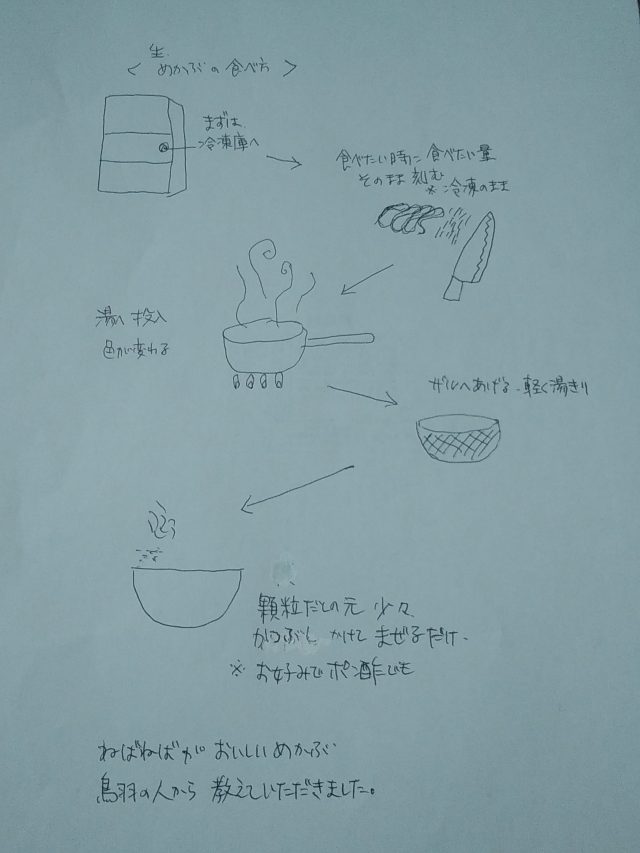 生
< めかぶの食べ方 >
まずは
冷凍庫へ
食べたい時に 食べたい量
そのまま 刻む
※ 冷凍のまま
湯へ 投入
色が変わる
ザルへあげる 軽く湯きり
顆粒だしの元 少々
かつぶし かけて まぜるだけ
※ お好みで ポン酢でも
ねばねばが おいしいめかぶ
鳥羽の人から 教えていただきました。